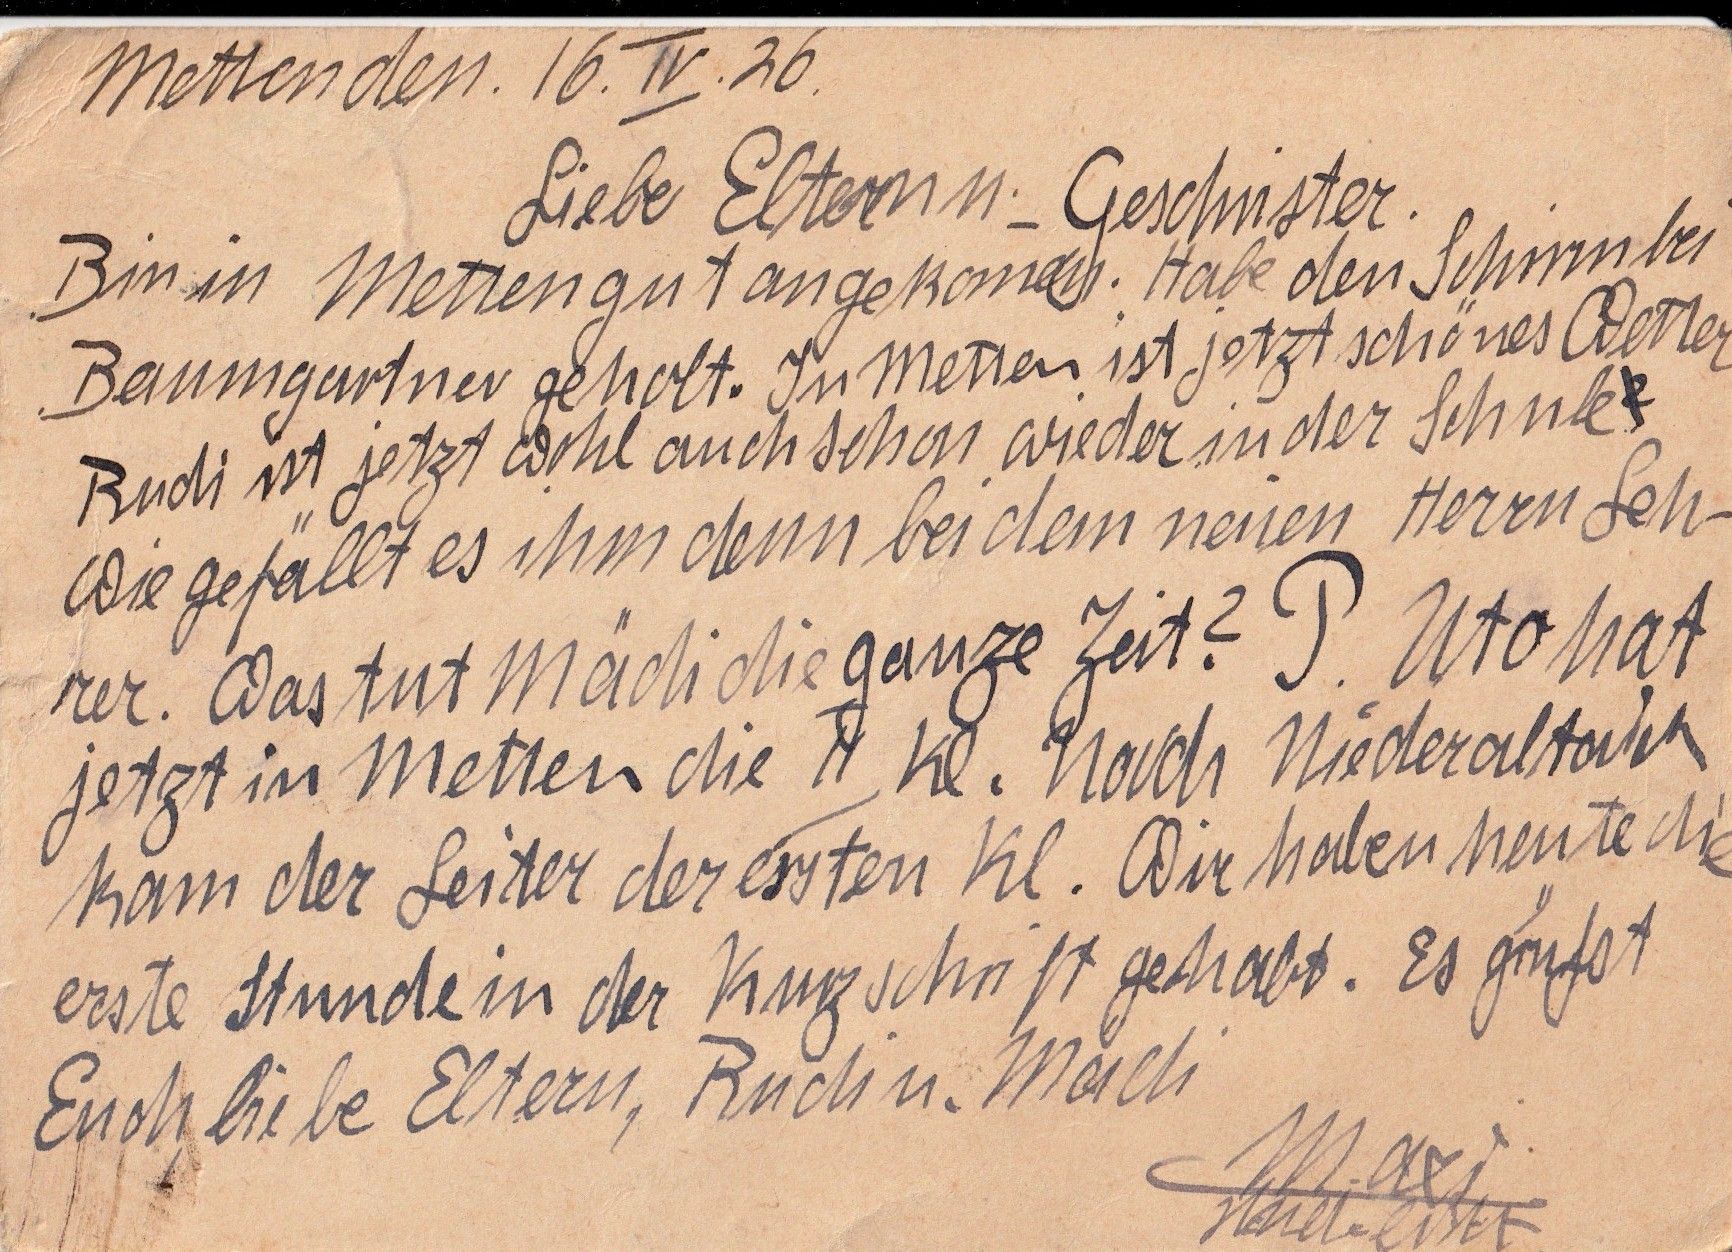 Metten den. 16. IV. 26.
Liebe Eltern u. Geschwister.
Bin in Metten gut angekomen. Habe den Schirm bei
Baumgartner geholt. In Metten ist jetzt schönes Wetter
Rudi ist jetzt wohl auch schon wieder in der Schule
Wie gefällt es ihm denn bei dem neuen Herrn Leh-
rer. Was tut Mädi die ganze Zeit? P. Uto hat
jetzt in Metten die II Kl. Nach Niederaltaich
kam der Leiter der ersten Kl. Wir haben heute die
erste Stunde in der Kurzschrift gehabt. Es grüsst
Euch, liebe Eltern, Rudi u. Mädi
Maxi